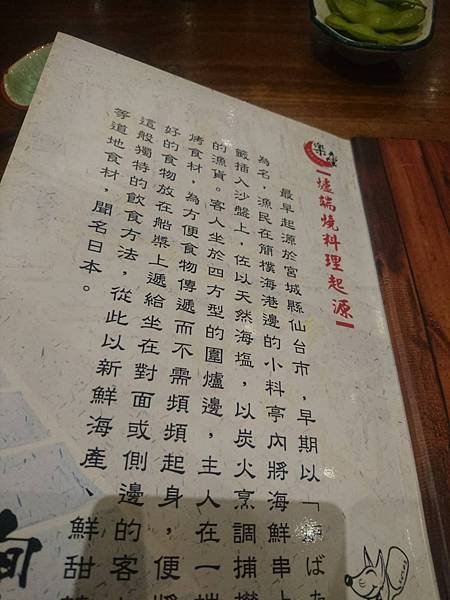 爐端燒料理起源
最早起源於宮城縣仙台市，早期以「
ばた
為名，漁民在簡樸海港邊的小料亭內將海鮮串上
籤插入沙盤上，佐以天然海塩，以炭火烹調捕撈
的漁貨。客人坐於四方型的圍爐邊，主人在一端
烤食材，為方便食物傳遞而不需頻頻起身，便將
好的食物放在船槳上遞給坐在對面或側邊的客
這般獨特的飲食方法，從此以新鮮海產
鮮甜
等道地食材，聞名日本。